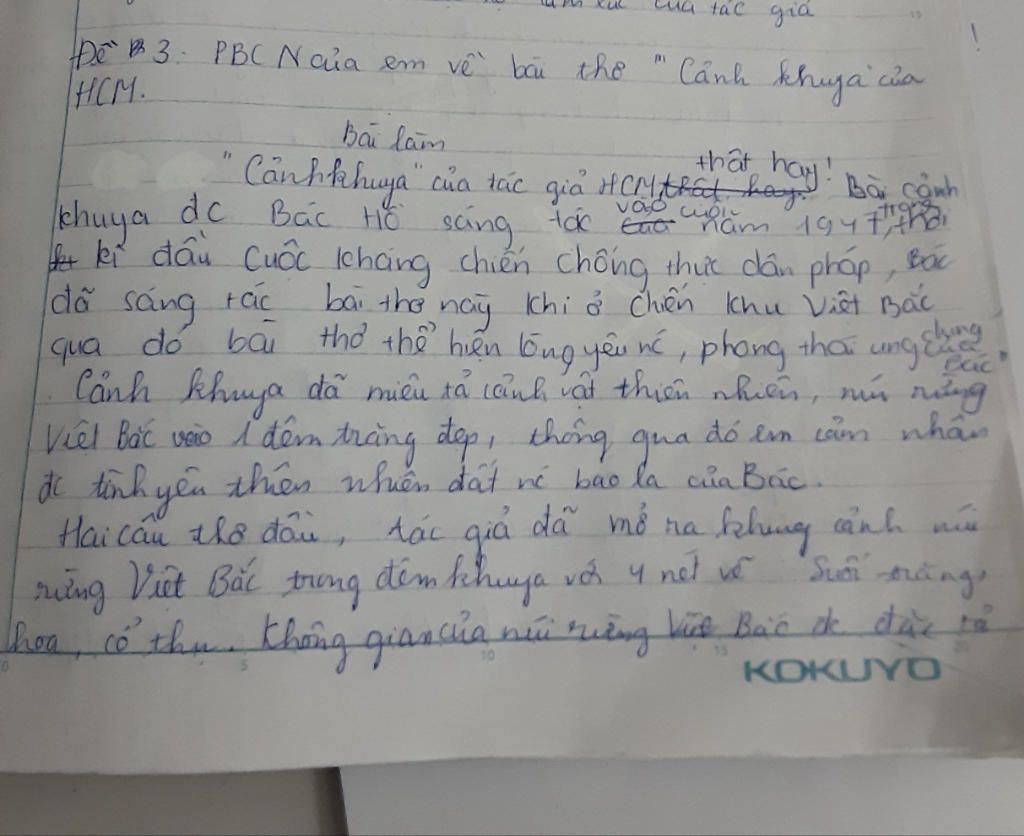 của tác giả
Đề 3. PBCN của em về bài thơ "Cảnh khuya" của
HCM.
Bài làm
"Cảnh khuya" của tác giả HCM thật hay! Bài cảnh
khuya đc Bác Hồ sáng tác vào cuối năm 1947, trong thời
kì đầu cuộc kháng chiến chống thực dân pháp, Bác
đã sáng tác bài thơ này khi ở chiến khu Việt Bắc
qua đó bài thơ thể hiện lòng yêu nc, phong thái ung dung của Bác
Cảnh khuya đã miêu tả cảnh vật thiên nhiên, núi rừng
Việt Bắc vào 1 đêm trăng đẹp, thông qua đó em cảm nhân
đc tình yêu thiên nhiên đất nc bao la của Bác.
Hai câu thơ đầu, tác giả đã mở ra khung cảnh núi
rừng Việt Bắc trong đêm khuya với 4 nét vẽ suối trăng,
hoa, cổ thụ. Không gian của núi rừng Việt Bắc đc đặc tả
0 5 10 15 20
KOKUYO